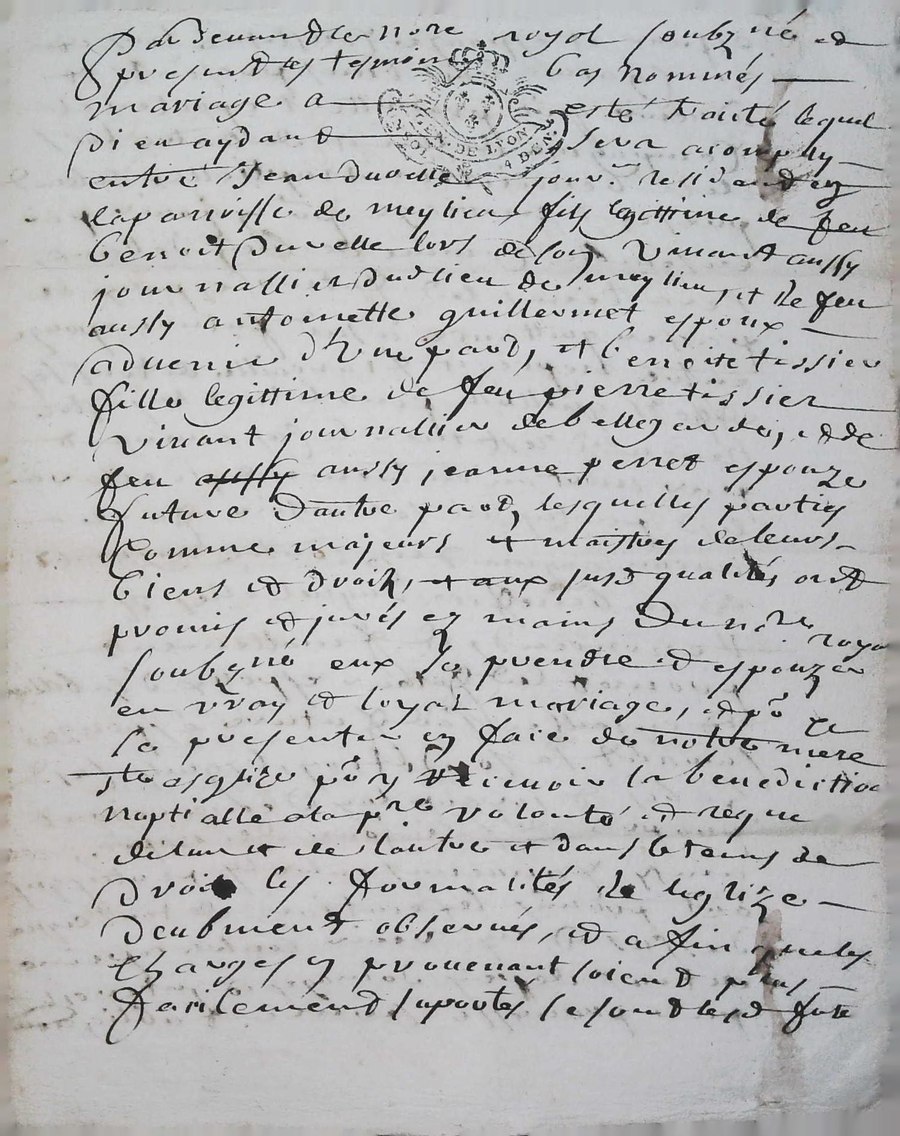 Pardevant le nore royal soubzné et
present les tesmoins bas nommés
mariage a esté traité lequel
GEN. DE LYON
4 DEN.
Dieu aydant sera acomply
entre Jean Duvelle jour.r ressidant en
la parroisse de meylieu fils legittime de feu
benoit Duvelle lors de son vivant aussy
journallier dudt lieu de meylieu, et de feu
aussy antoinette guillermet espoux
advenir d'Une part, et benoite tissier
fille legittime de feu pierre tissier
vivant journallier de bellegarde, et de
feu aussy aussy jeanne perret espouze
future d'autre part, lesquelles parties
Comme majeurs et maistres de leurs
biens et droits, et aux susd qualités ont
promis et jurés en mains Du nore royal
soubzné eux se prendre et espouzer
en vray et loyal mariage, et po ce
se presenter en face de notre mere
ste esglize po y recevoir la benediction
noptialle a la pre volonté et reque
de lun et de lautre et dans le tems de
Droit les fourmalités de leglize
deubment observés, et afin que les
Charges en provenant soient plus
facilement suportés se sont lesd futs